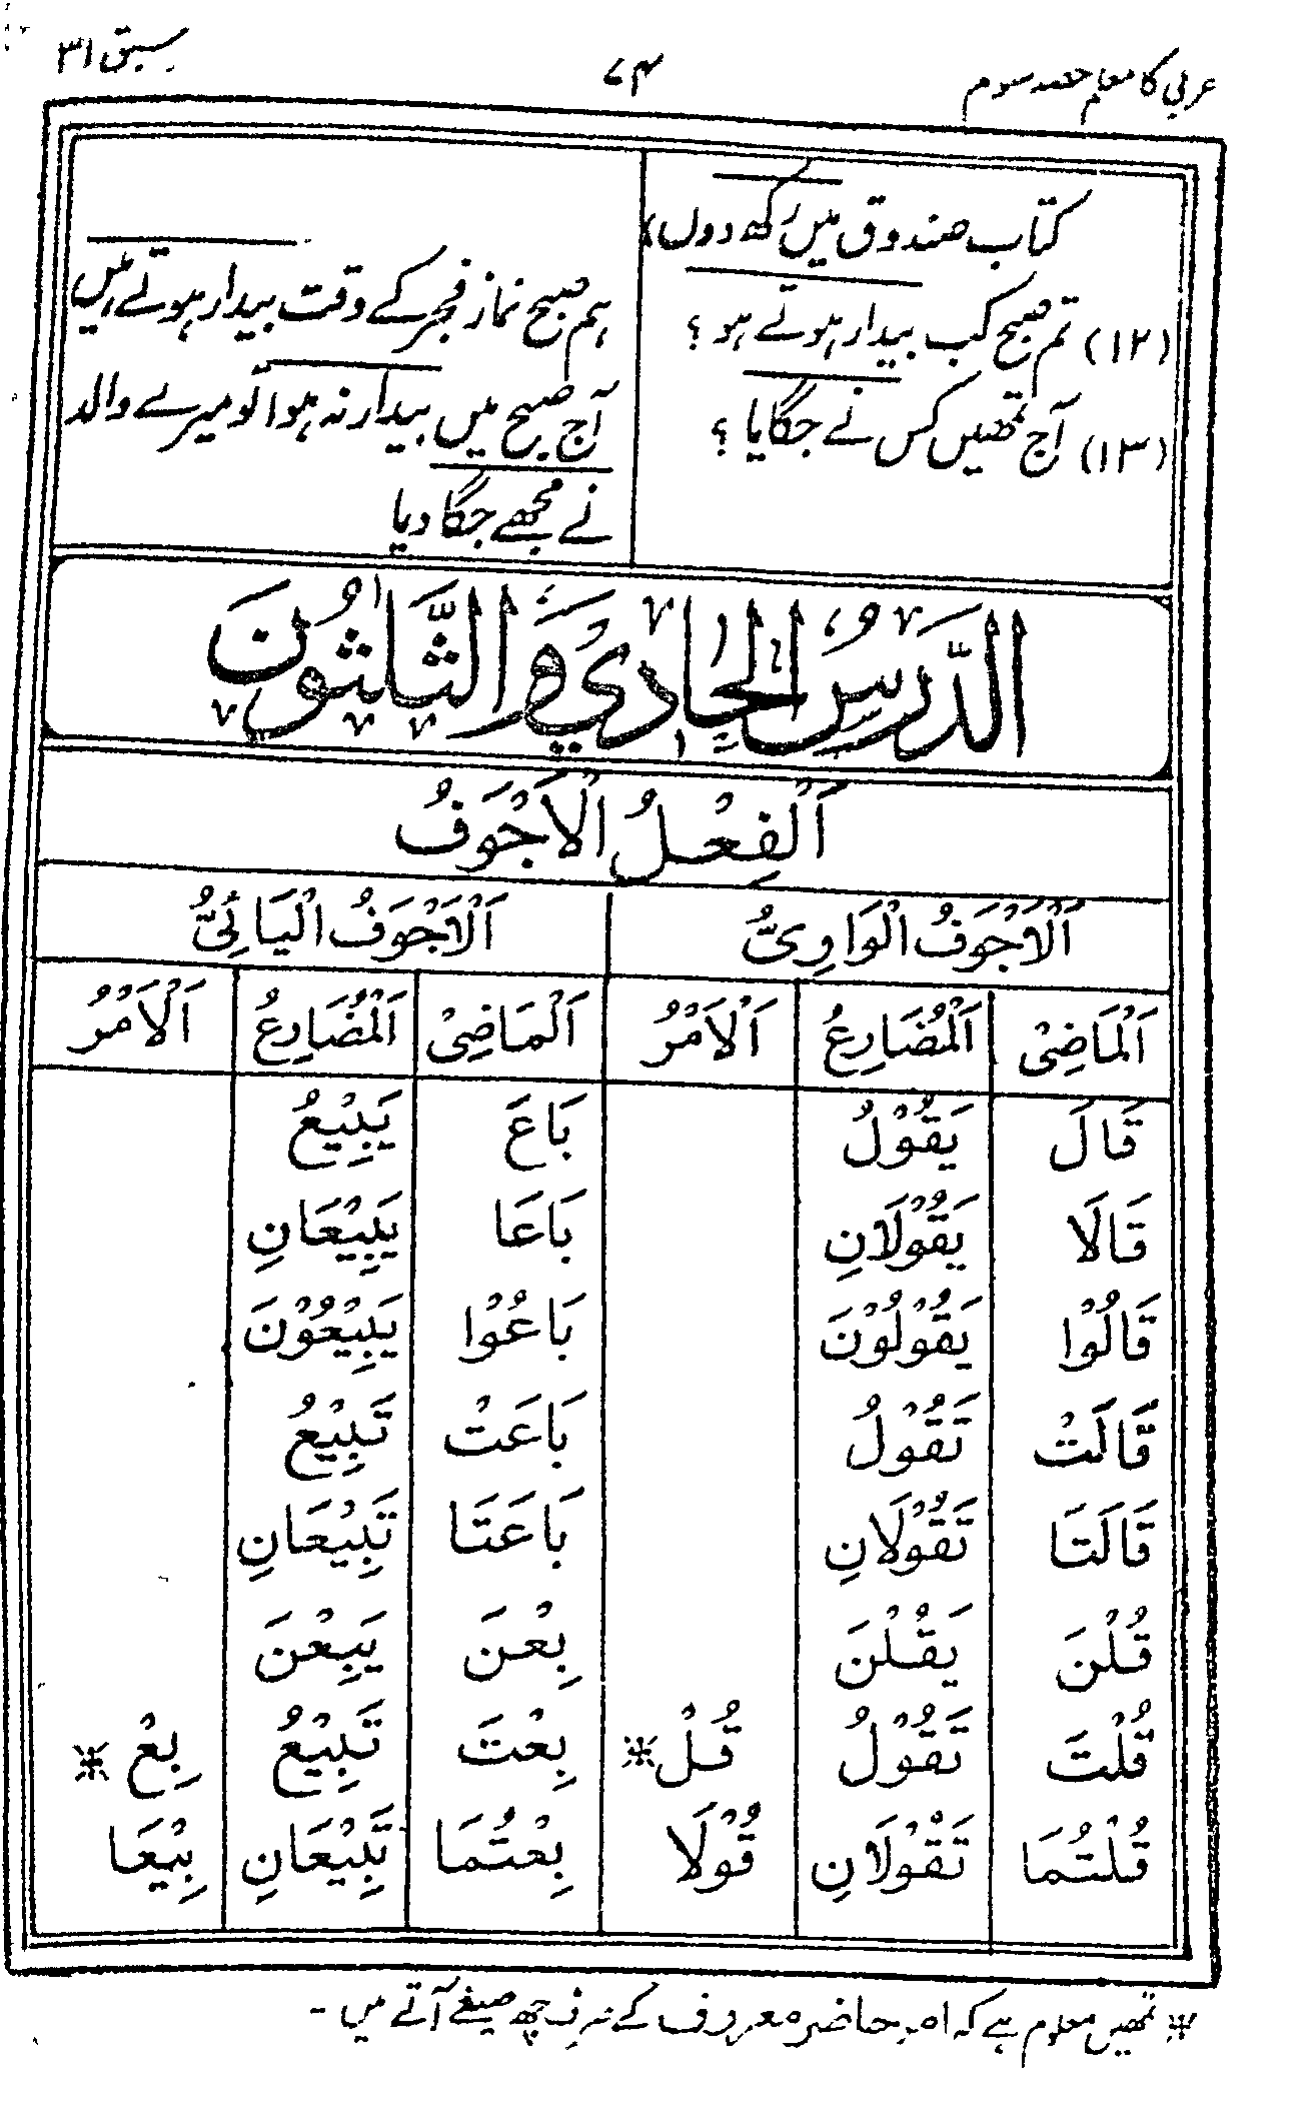 عربی کا معلم حصہ سوم ۷۴ سبق ۳۱
کتاب صندوق میں رکھ دوں)
(۱۲) تم صبح کب بیدار ہوتے ہو ؟
(۱۳) آج تمھیں کس نے جگایا ؟
ہم صبح نماز فجر کے وقت بیدار ہوتے ہیں
آج صبح میں بیدار نہ ہوا تو میرے والد
نے مجھے جگا دیا
الدَّرْسُ الْحَادِيْ وَالثَّلٰثُوْنَ
اَلْفِعْلُ الْاَجْوَفُ
اَلْاَجْوَفُ الْوَاوِیُّ اَلْاَجْوَفُ الْیَائِیُّ
اَلْمَاضِیْ اَلْمُضَارِعُ اَلْاَمْرُ اَلْمَاضِیْ اَلْمُضَارِعُ اَلْاَمْرُ
قَالَ يَقُوْلُ بَاعَ يَبِيْعُ
قَالَا يَقُوْلَانِ بَاعَا يَبِيْعَانِ
قَالُوْا يَقُوْلُوْنَ بَاعُوْا يَبِيْعُوْنَ
قَالَتْ تَقُوْلُ بَاعَتْ تَبِيْعُ
قَالَتَا تَقُوْلَانِ بَاعَتَا تَبِيْعَانِ
قُلْنَ يَقُلْنَ بِعْنَ يَبِعْنَ
قُلْتَ تَقُوْلُ قُلْ* بِعْتَ تَبِيْعُ بِعْ*
قُلْتُمَا تَقُوْلَانِ قُوْلَا بِعْتُمَا تَبِيْعَانِ بِيْعَا
* تمھیں معلوم ہے کہ امر حاضر معروف کے صرف چھ صیغے آتے ہیں -